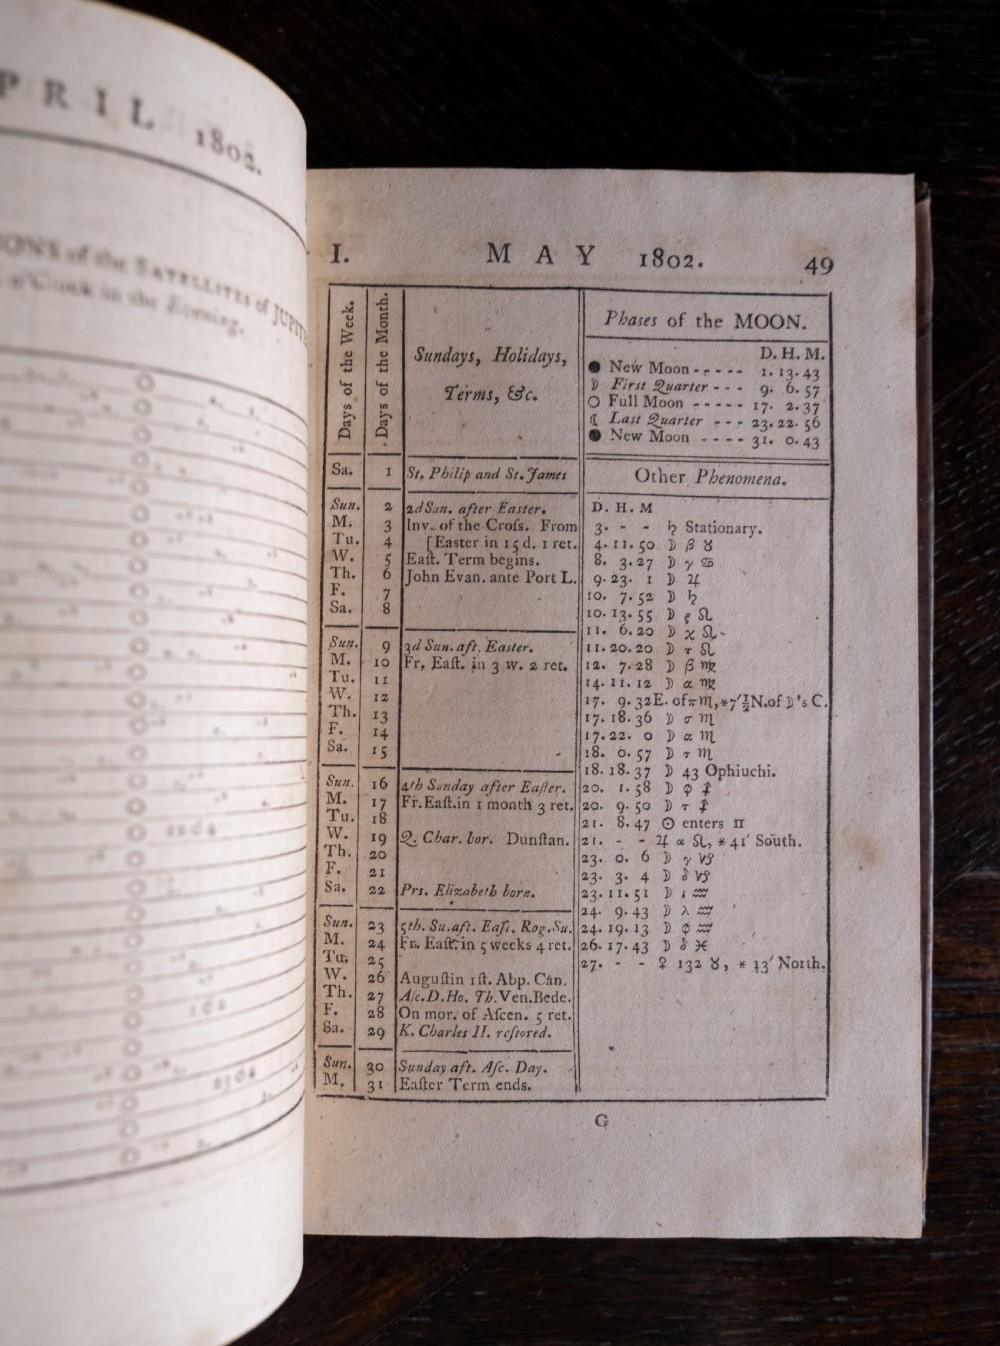 PRIL 1802.
IONS of the SATELLITES of JUPITE
o'Clock in the Evening.
I. MAY 1802. 49
Days of the Week.
Days of the Month.
Sundays, Holidays,
Terms, &c.
Phases of the MOON.
D. H. M.
● New Moon - - - - - 1. 13. 43
☽ First Quarter - - - 9. 6. 57
○ Full Moon - - - - - 17. 2. 37
☾ Last Quarter - - - 23. 22. 56
● New Moon - - - - 31. 0. 43
Sa. 1 St. Philip and St. James
Sun. 2 2d Sun. after Easter.
M. 3 Inv. of the Croſs. From
Tu. 4 [Easter in 15 d. 1 ret.
W. 5 Eaſt. Term begins.
Th. 6 John Evan. ante Port L.
F. 7
Sa. 8
Sun. 9 3d Sun. aft. Easter.
M. 10 Fr. Eaſt. in 3 w. 2 ret.
Tu. 11
W. 12
Th. 13
F. 14
Sa. 15
Sun. 16 4th Sunday after Eaſter.
M. 17 Fr. Eaſt. in 1 month 3 ret.
Tu. 18
W. 19 Q. Char. bor. Dunſtan.
Th. 20
F. 21
Sa. 22 Prs. Elizabeth born.
Sun. 23 5th. Su. aft. Eaſ. Rog. Su.
M. 24 Fr. Eaſt. in 5 weeks 4 ret.
Tu. 25
W. 26 Auguſtin 1ſt. Abp. Can.
Th. 27 Aſc. D. Ho. Th. Ven. Bede.
F. 28 On mor. of Aſcen. 5 ret.
Sa. 29 K. Charles II. reſtored.
Sun. 30 Sunday aft. Aſc. Day.
M. 31 Eaſter Term ends.
Other Phenomena.
D. H. M
3. - - ♄ Stationary.
4. 11. 50 ☽ β ♉
8. 3. 27 ☽ γ ♋
9. 23. 1 ☽ ♃
10. 7. 52 ☽ ♄
10. 13. 55 ☽ ρ ♌
11. 6. 20 ☽ χ ♌
11. 20. 20 ☽ τ ♌
12. 7. 28 ☽ β ♍
14. 11. 12 ☽ α ♍
17. 9. 32 E. of π ♏, * 7′½ N. of ☽'s C.
17. 18. 36 ☽ σ ♏
17. 22. 0 ☽ α ♏
18. 0. 57 ☽ τ ♏
18. 18. 37 ☽ 43 Ophiuchi.
20. 1. 58 ☽ φ ♐
20. 9. 50 ☽ τ ♐
21. 8. 47 ☉ enters ♊
21. - - ♃ α ♌, * 41′ South.
23. 0. 6 ☽ γ ♑
23. 3. 4 ☽ δ ♑
23. 11. 51 ☽ ι ♒
24. 9. 43 ☽ λ ♒
24. 19. 13 ☽ φ ♒
26. 17. 43 ☽ δ ♓
27. - - ♀ 132 ♉, * 13′ North.
G